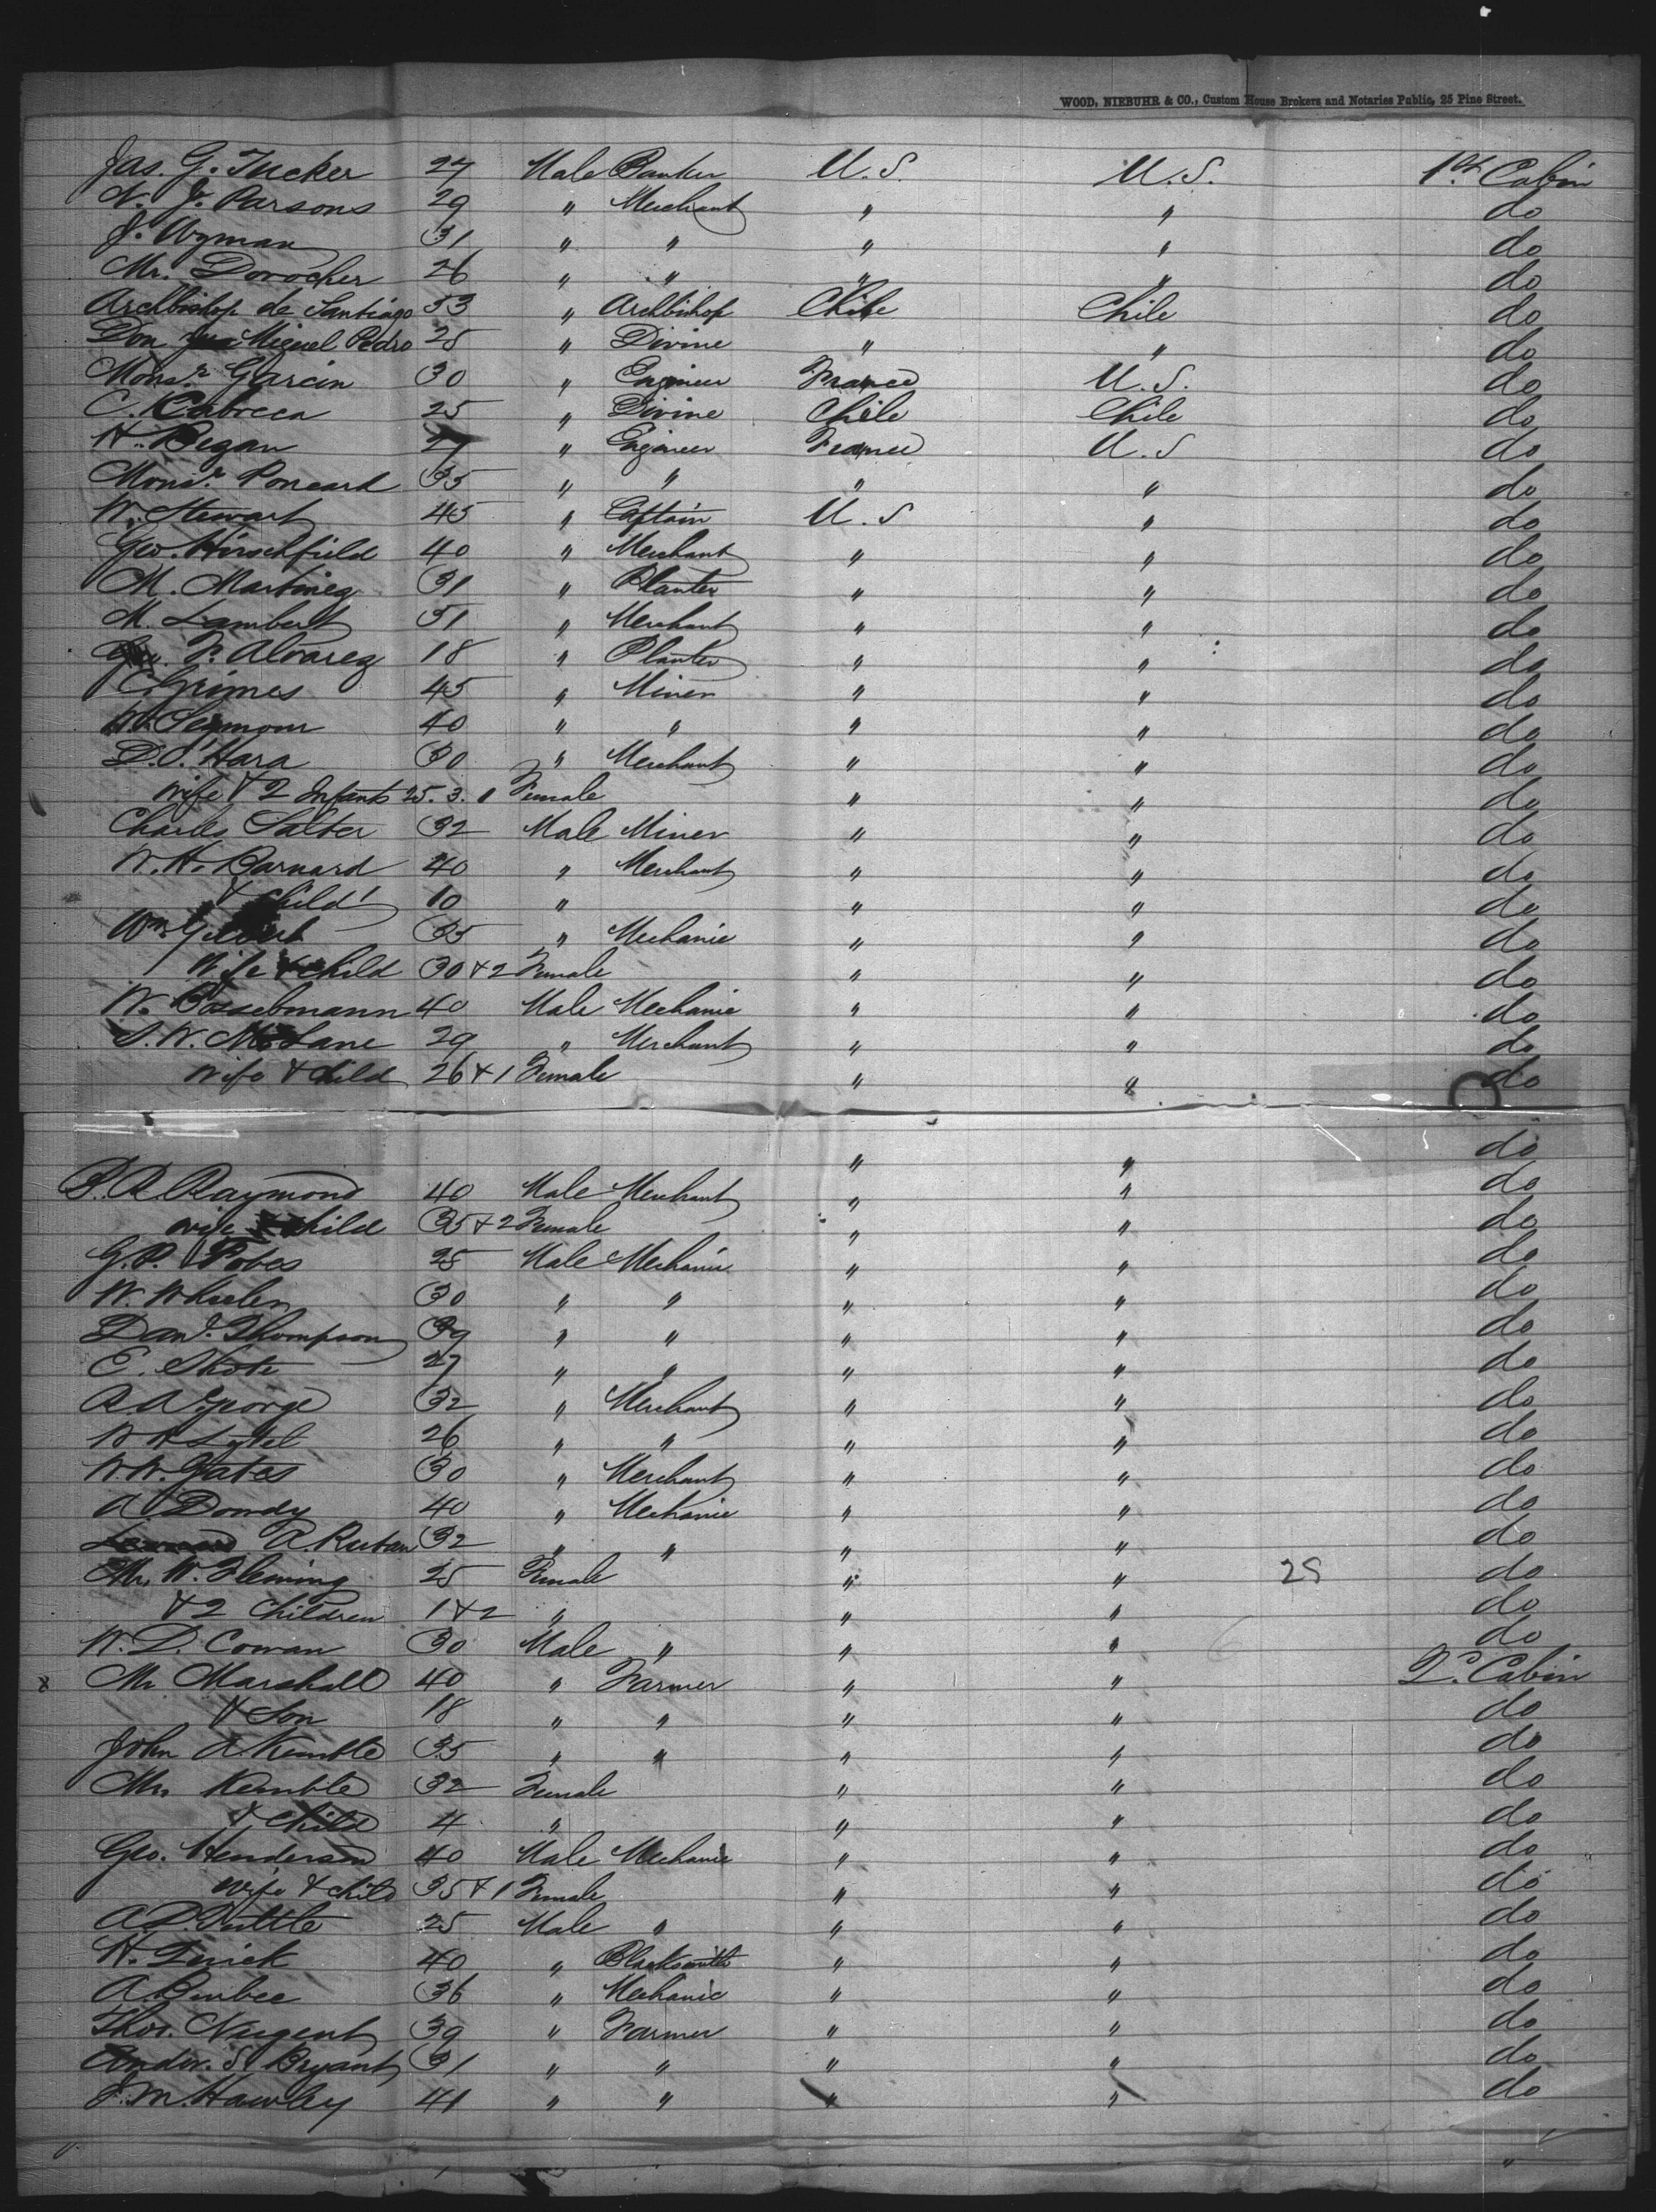 WOOD, NIEBUHR & CO., Custom House Brokers and Notaries Public, 25 Pine Street.
Jas. G. Tucker 27 Male Banker U.S. U.S. 1st Cabin
N. J. Parsons 29 " Merchant " " do
J. Wyman 31 " " " " do
Mr. Dorocher 26 " " " " do
Archbishop de Santiago 53 " Archbishop Chile Chile do
Don Miguel Pedro 25 " Divine " " do
Monsr. Garcin 30 " Engineer France U.S. do
C. Cabrera 25 " Divine Chile Chile do
H. Began 27 " Engineer France U.S do
Monsr. Poncard 35 " " " " do
W. Stewart 45 " Captain U.S " do
Geo. Hirschfield 40 " Merchant " " do
M. Martinez 31 " Planter " " do
M. Lambert 31 " Merchant " " do
F. Alvarez 18 " Planter " " do
C. Grimes 45 " Miner " " do
W. Seymour 40 " " " " do
D. O'Hara 30 " Merchant " " do
wife & 2 Infants 25. 3. 1 Female " " do
Charles Salter 32 Male Miner " " do
W. H. Barnard 40 " Merchant " " do
& child 10 " " " do
Wm. 35 " Mechanic " " do
Wife & child 30 & 2 Female " " do
W. 40 Male Mechanic " " do
S. W. McLane 29 " Merchant " " do
wife & child 26 & 1 Female " " do
" " do
B. R. Raymond 40 Male Merchant " " do
wife & child 35 & 2 Female " " do
G. P. Fobes 25 Male Mechanic " " do
W. Wheeler 30 " " " " do
Danl. Thompson 39 " " " " do
E. Shote 27 " " " " do
A A George 32 " Merchant " " do
W H Lytel 26 " " " " do
W. W. Gates 30 " Merchant " " do
A Dowdy 40 " Mechanic " " do
A. Rutan 32 " " " " do
Mrs W. Fleming 25 Female " " 25 do
& 2 Children 1 & 2 " " " do
W. D. Cowan 30 Male " " " do
x Mr Marshall 40 " Farmer " " 2d. Cabin
& Son 18 " " " " do
John A. Kemble 35 " " " " do
Mrs Kemble 32 Female " " do
& Child 4 " " " do
Geo. Henderson 40 Male Mechanic " " do
wife & child 35 & 1 Female " " do
A. D. Tuttle 25 Male " " " do
H. Derick 40 " Blacksmith " " do
A. Bunbee 36 " Mechanic " " do
Thos. Nugent 39 " Farmer " " do
Andw. S. Bryant 31 " " " " do
J. M. Hawley 41 " " " " do